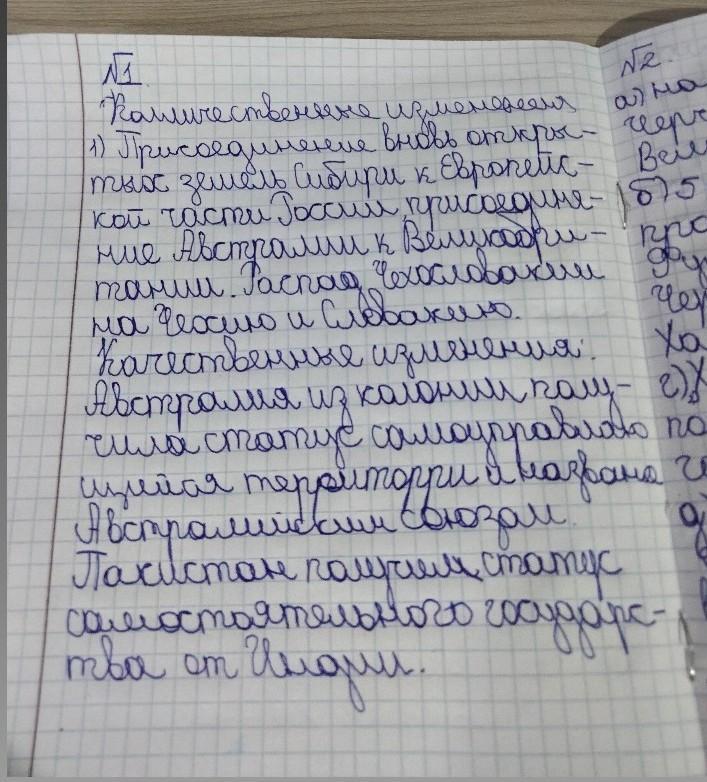 №1
Количественные изменения
1) Присоединение вновь откры-
тых земель Сибири к Европейс-
кой части России, присоедине-
ние Австралии к Великобри-
тании. Распад Чехословакии
на Чехию и Словакию.
Качественные изменения:
Австралия из колонии полу-
чила статус самоуправляю
щийся территорри и названа
Австралийским союзом.
Пакистан получил статус
самостоятельного государс-
тва от Индии.
№2.
а) на
черч
Вел
б) 5
про
Фу
чер
Ха
г) Х
по